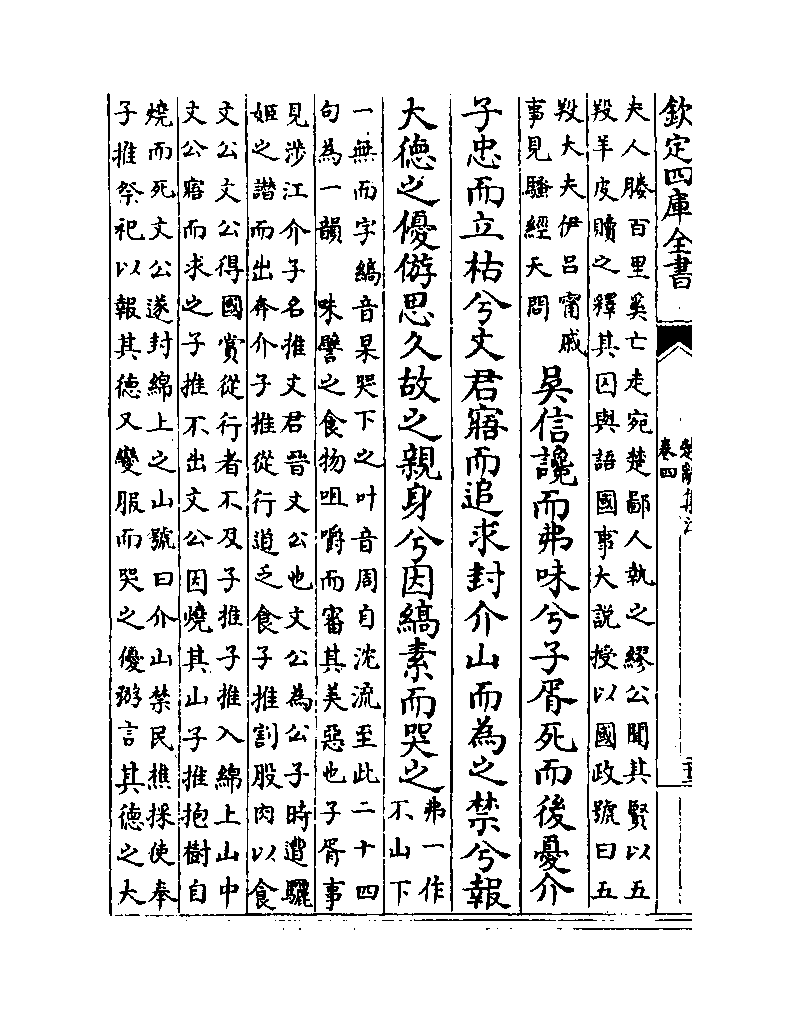 欽定四庫全書
卷四
夫人媵百里奚亡走宛楚鄙人執之繆公聞其賢以五
羖羊皮贖之釋其囚與語國事大說授以國政號曰五
羖大夫伊呂甯戚
事見騷經天問
吳信讒而弗味兮子胥死而後憂介
子忠而立枯兮文君寤而追求封介山而為之禁兮報
大德之優游思久故之親身兮因縞素而哭之
弗一作
不山下
一無而字縞音杲哭下之叶音周自沈流至此二十四
句為一韻 味譬之食物咀嚼而審其美惡也子胥事
見涉江介子名推文君晉文公也文公為公子時遭驪
姬之譖而出奔介子推從行道乏食子推割股肉以食
文公文公得國賞從行者不及子推子推入綿上山中
文公寤而求之子推不出文公因燒其山子推抱樹自
燒而死文公遂封綿上之山號曰介山禁民樵採使奉
子推祭祀以報其德又變服而哭之優游言其德之大